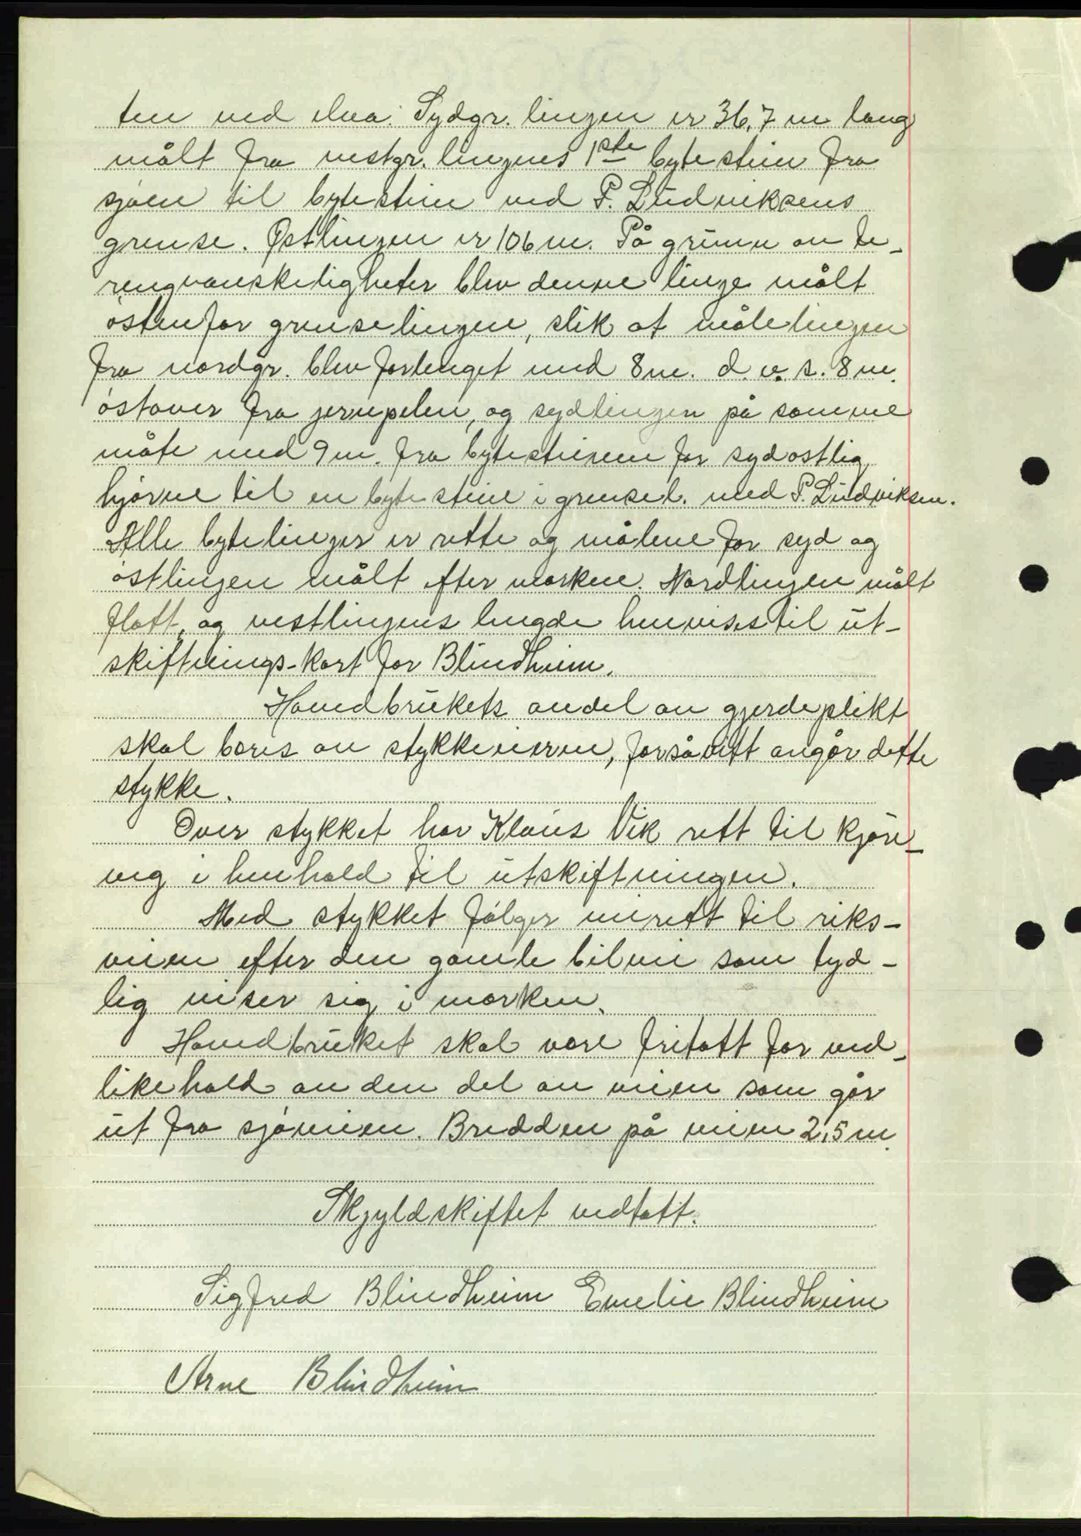 ten ved elva. Sydgr. linjen er 36,7 m lang
målt fra vestgr. linjens 1ste bytestein fra
sjøen til bytestein ved P. Ludviksens
grense. Østlinjen er 106 m. På grunn av te-
rengvanskeligheter blev denne linje målt
østenfor grenselinjen, slik at målelinjen
fra nordgr. blev forlenget med 8 m. d.v.s. 8 m.
østover fra jernpelen, og sydlinjen på samme
måte med 9 m. fra bytesteinen for sydostlig
hjørne til en bytestein i grensel. med P. Ludviksen.
Alle bytelinjer er rette og målene for syd og
østlinjen målt efter marken. Nordlinjen målt
flatt, og vestlinjens lengde henvises til ut-
skiftnings-kart for Blindheim.
Hovedbrukets andel av gjerdeplikt
skal bæres av stykkeieren, forsåvitt angår dette
stykke.
Over stykket har Klaus Vik rett til kjøre-
veg i henhold til utskiftningen.
Med stykket følger veirett til riks-
veien efter den gamle bilvei som tyd-
lig viser sig i marken.
Hovedbruket skal være fritatt for ved-
likehold av den del av veien som går
ut fra sjøveien. Bredden på veien 2,5 m.
Skjyldskiftet vedtatt.
Sigfred Blindheim Emelie Blindheim
Arne Blindheim